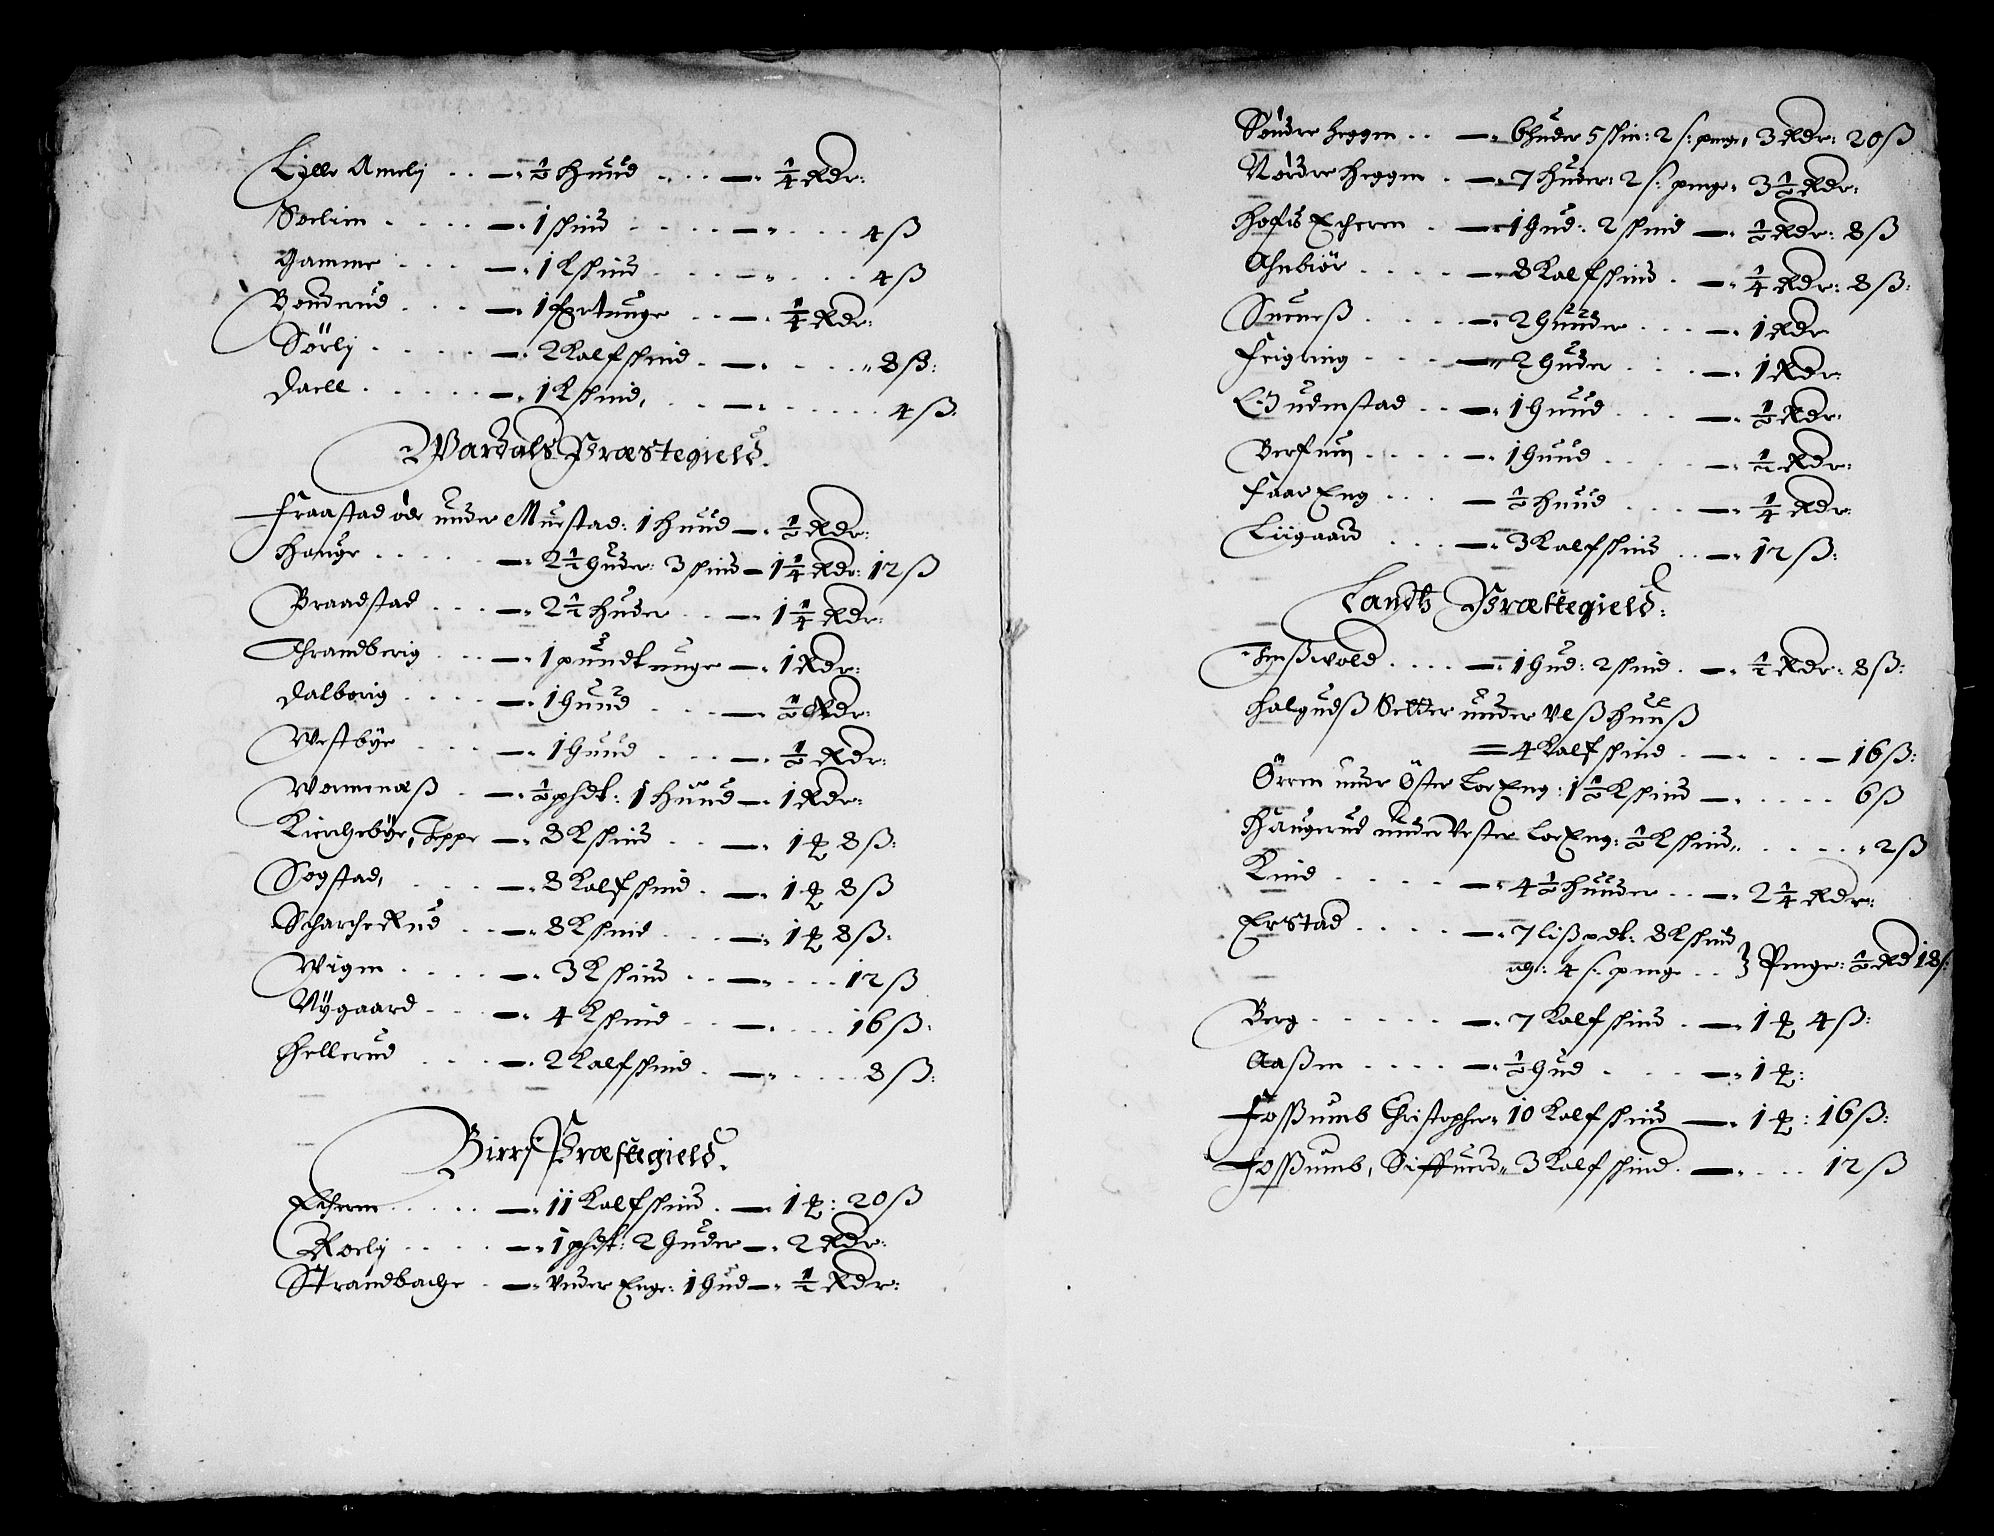 Lille Amelij — ½ Huud — ¼ Rdr:
Soelim — 1 skind — 4 ß
Gamme — 1 K skind — 4 ß
Bondrud — 1 fiertunge — ¼ Rdr:
Sörlj — 2 Kalfskind — 8 ß:
Daell — 1 K skind, — 4 ß:
Wardals Præstegield.
Fraastad öde under Muestad: 1 Huud — ½ Rdr:
Houge — 2½ Huder: 3 skind — 1¼ Rdr: 12 ß
Braadstad — 2½ Huder — 1¼ Rdr:
Thrandberig — 1 pundt unge — 1 Rdr:
Dalborig — 1 Huud — ½ Rdr:
Westbye — 1 Huud — ½ Rdr:
Wommenæß — ½ phdt: 1 Huud — 1 Rdr:
Kierchebÿe, Eppe — 8 K skind — 1 ꝑ 8 ß:
Sogstad, — 8 Kalfskind — 1 ꝑ 8 ß
Scharche Rud — 8 K skind — 1 ꝑ 8 ß:
Wigen — 3 K skind — 12 ß
Nÿgaard — 4 K skind — 16 ß:
Hellerud — 2 Kalfskind — 8 ß:
Birrj Præstegield.
Echern — 11 Kalfskind — 1 ꝑ: 20 ß
Roelj — 1 phdt: 2 Huder — 2 Rdr:
Strandbache — Under Enge: 1 Hud — ½ Rdr:
Söndre Heggen — 6 huder 5 skin: 2 s: penge, 3 Rdr: 20 ß
Nordre Heggen — 7 Huder: 2 s: penge, 3½ Rdr:
Hofis Echeren — 1 Hud: 2 skind — ½ Rdr: 8 ß
Ahnbiör — 8 Kalfskind — ¼ Rdr: 8 ß:
Sueneß — 2 Huuder — 1 Rdr
Feigring — 2 Huder — 1 Rdr:
Gudmstad — 1 Huud — ½ Rdr:
Berfuen — 1 Huud — ½ Rdr:
Faar Eng — ½ Huud — ¼ Rdr:
Liigaard — 3 Kalfskind — 12 ß:
Landtz Præstegield:
Emßvold — 1 Hud: 2 skind — ½ Rdr: 8 ß:
Halgudß Setter under Ulß Huuß
= 4 Kalfskind — 16 ß:
Örren under Öster Loe Eng: 1½ K skind — 6 ß
Haugerud under Vester Loe Eng: ½ K skind, 2 ß
Kind — 4½ Huuder — 2¼ Rdr:
Erstad — 7 lißpdt: 8 K skind
og: 4 s: penge } Penge: ½ Rd 18 s:
Berg — 7 Kalfskind — 1 ꝑ 4 ß:
Aaßen — ½ Hud — 1 ꝑ:
Foßumb Christopher, 10 Kalfskind — 1 ꝑ: 16 ß:
Foßumb, Siffuerd, 3 Kalfskind — 12 ß